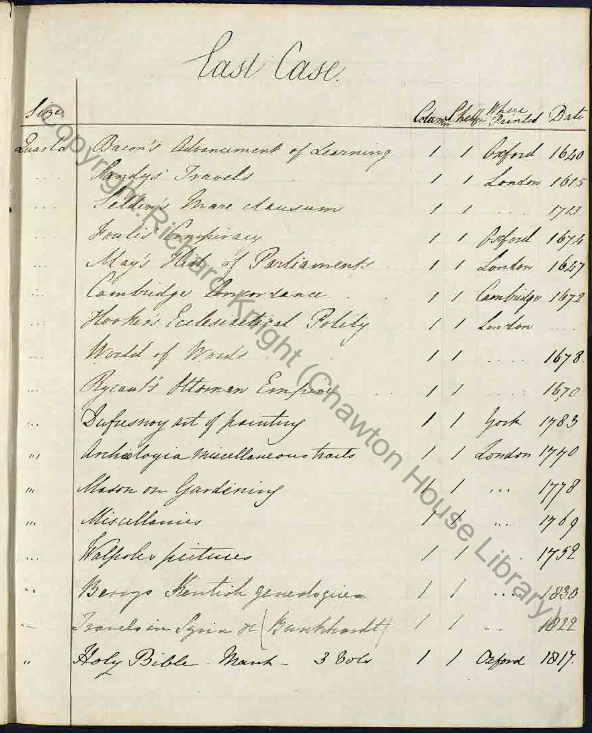 East Case.
Size Column Shelf Where Printed Date
Quarto Bacon's Advancement of Learning 1 1 Oxford 1640
... Sandys' Travels 1 1 London 1615
... Selden's Mare clausum 1 1 ... 1713
... Foulis' Conspiracy 1 1 Oxford 1674
... May's Hist. of Parliaments 1 1 London 1647
... Cambridge Concordance 1 1 Cambridge 1672
... Hooker's Ecclesiastical Polity 1 1 London ...
... World of Words 1 1 ... 1678.
... Rycaut's Ottoman Empire 1 1 ... 1670
... Dufresnoy art of painting 1 1 York 1783
" Archælogia Miscellaneous tracts 1 1 London 1770
" Mason on Gardening 1 1 ... 1778
" Miscellanies 1 1 " 1769
... Walpole's pictures 1 1 ... 1752
" Berrys Kentish genealogies 1 1 ... 1830
— Travels in Syria &c (Burckhardt) 1 1 ... 1822
" Holy Bible. Mant - 3 Vols 1 1 Oxford 1817.
Copyright: Richard Knight (Chawton House Library)